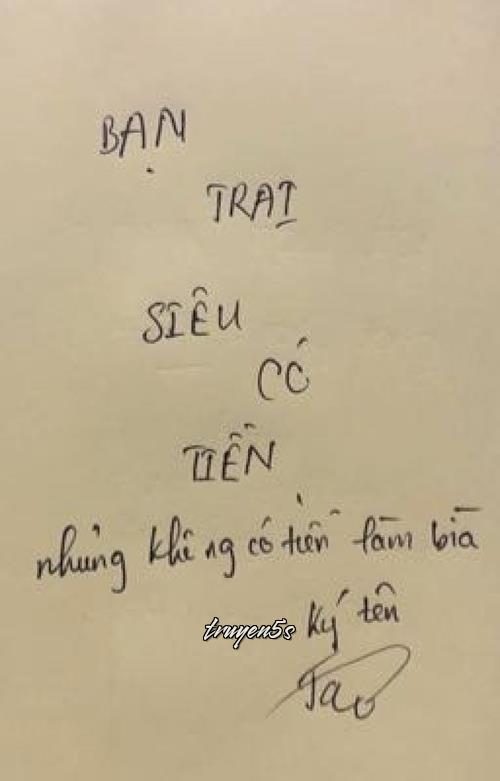 BẠN
TRAI
SIÊU
CÓ
TIỀN
nhưng không có tiền làm bìa
truyen5s
Ký tên
Tao